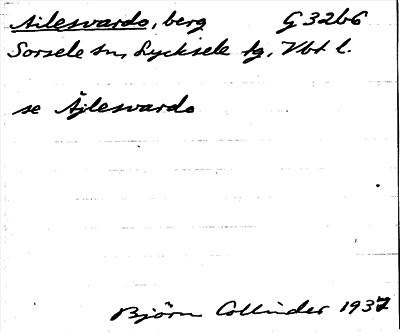 Ailesvardo, berg G 32b6
Sorsele sn, Lycksele tg, Vbt l.
se Äjlesvardo
Björn Collinder 1937